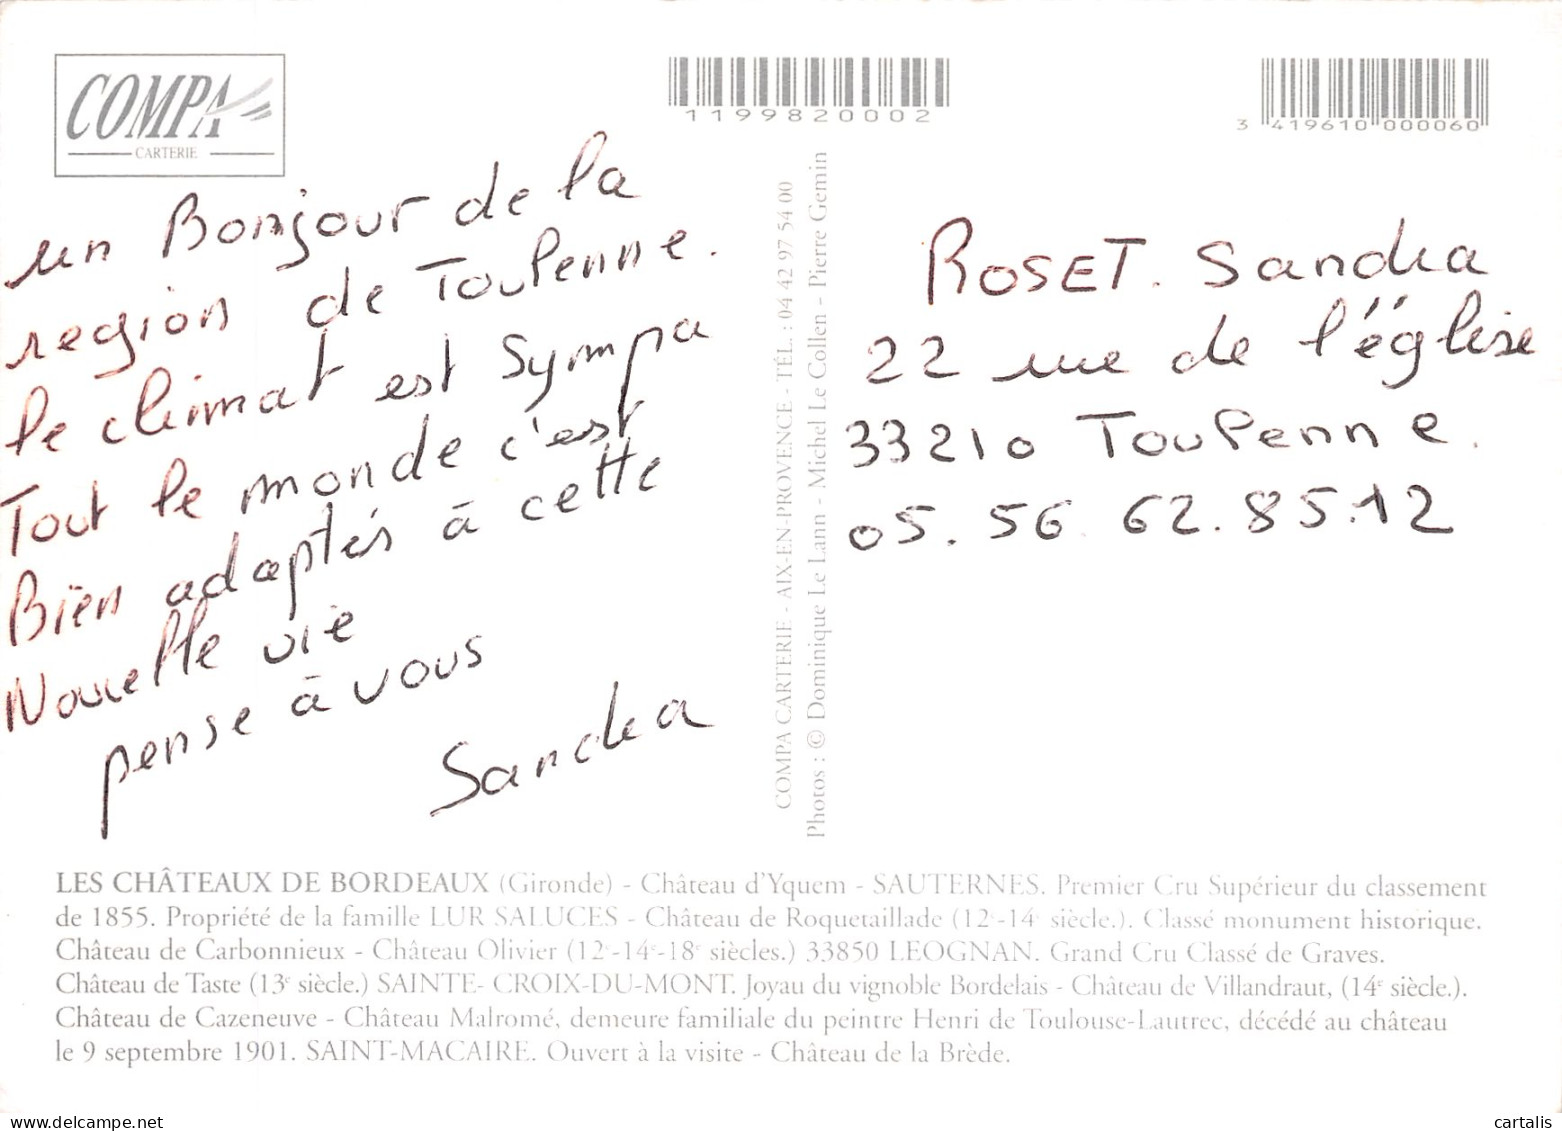 COMPA
CARTERIE
1199820002
3 419610 000060
un Bonjour de la
region de Toulenne.
le climat est Sympa
Tout le monde c'est
Bien adaptés à cette
Nouvelle vie
pense à vous
Sandra
COMPA CARTERIE - AIX-EN-PROVENCE - TÉL. : 04 42 97 54 00
Photos : © Dominique Le Lann - Michel Le Collen - Pierre Gemin
ROSET. Sandra
22 rue de l'église
33210 Toulenne.
05.56.62.85.12
LES CHÂTEAUX DE BORDEAUX (Gironde) - Château d'Yquem - SAUTERNES. Premier Cru Supérieur du classement
de 1855. Propriété de la famille LUR SALUCES - Château de Roquetaillade (12e-14e siècle.). Classé monument historique.
Château de Carbonnieux - Château Olivier (12e-14e-18e siècles.) 33850 LEOGNAN. Grand Cru Classé de Graves.
Château de Taste (13e siècle.) SAINTE- CROIX-DU-MONT. Joyau du vignoble Bordelais - Château de Villandraut, (14e siècle.).
Château de Cazeneuve - Château Malromé, demeure familiale du peintre Henri de Toulouse-Lautrec, décédé au château
le 9 septembre 1901. SAINT-MACAIRE. Ouvert à la visite - Château de la Brède.
www.delcampe.net
cartalis